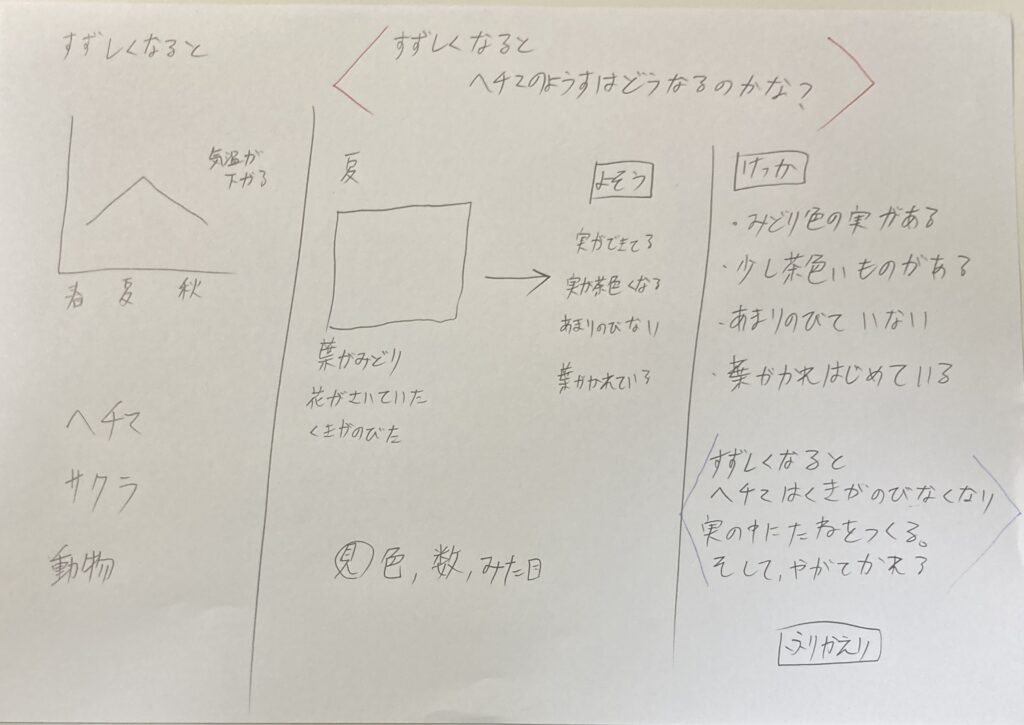 すずしくなると
気温が
下がる
春 夏 秋
ヘチマ
サクラ
動物
すずしくなると
ヘチマのようすはどうなるのかな?
夏
葉がみどり
花がさいていた
くきがのびた
よそう
実ができてる
実が茶色くなる
あまりのびない
葉がかれている
見 色, 数, みた目
けっか
・みどり色の実がある
・少し茶色いものがある
・あまりのびていない
・葉がかれはじめている
すずしくなると
ヘチマはくきがのびなくなり
実の中にたねをつくる。
そして、やがてかれる
ふりかえり